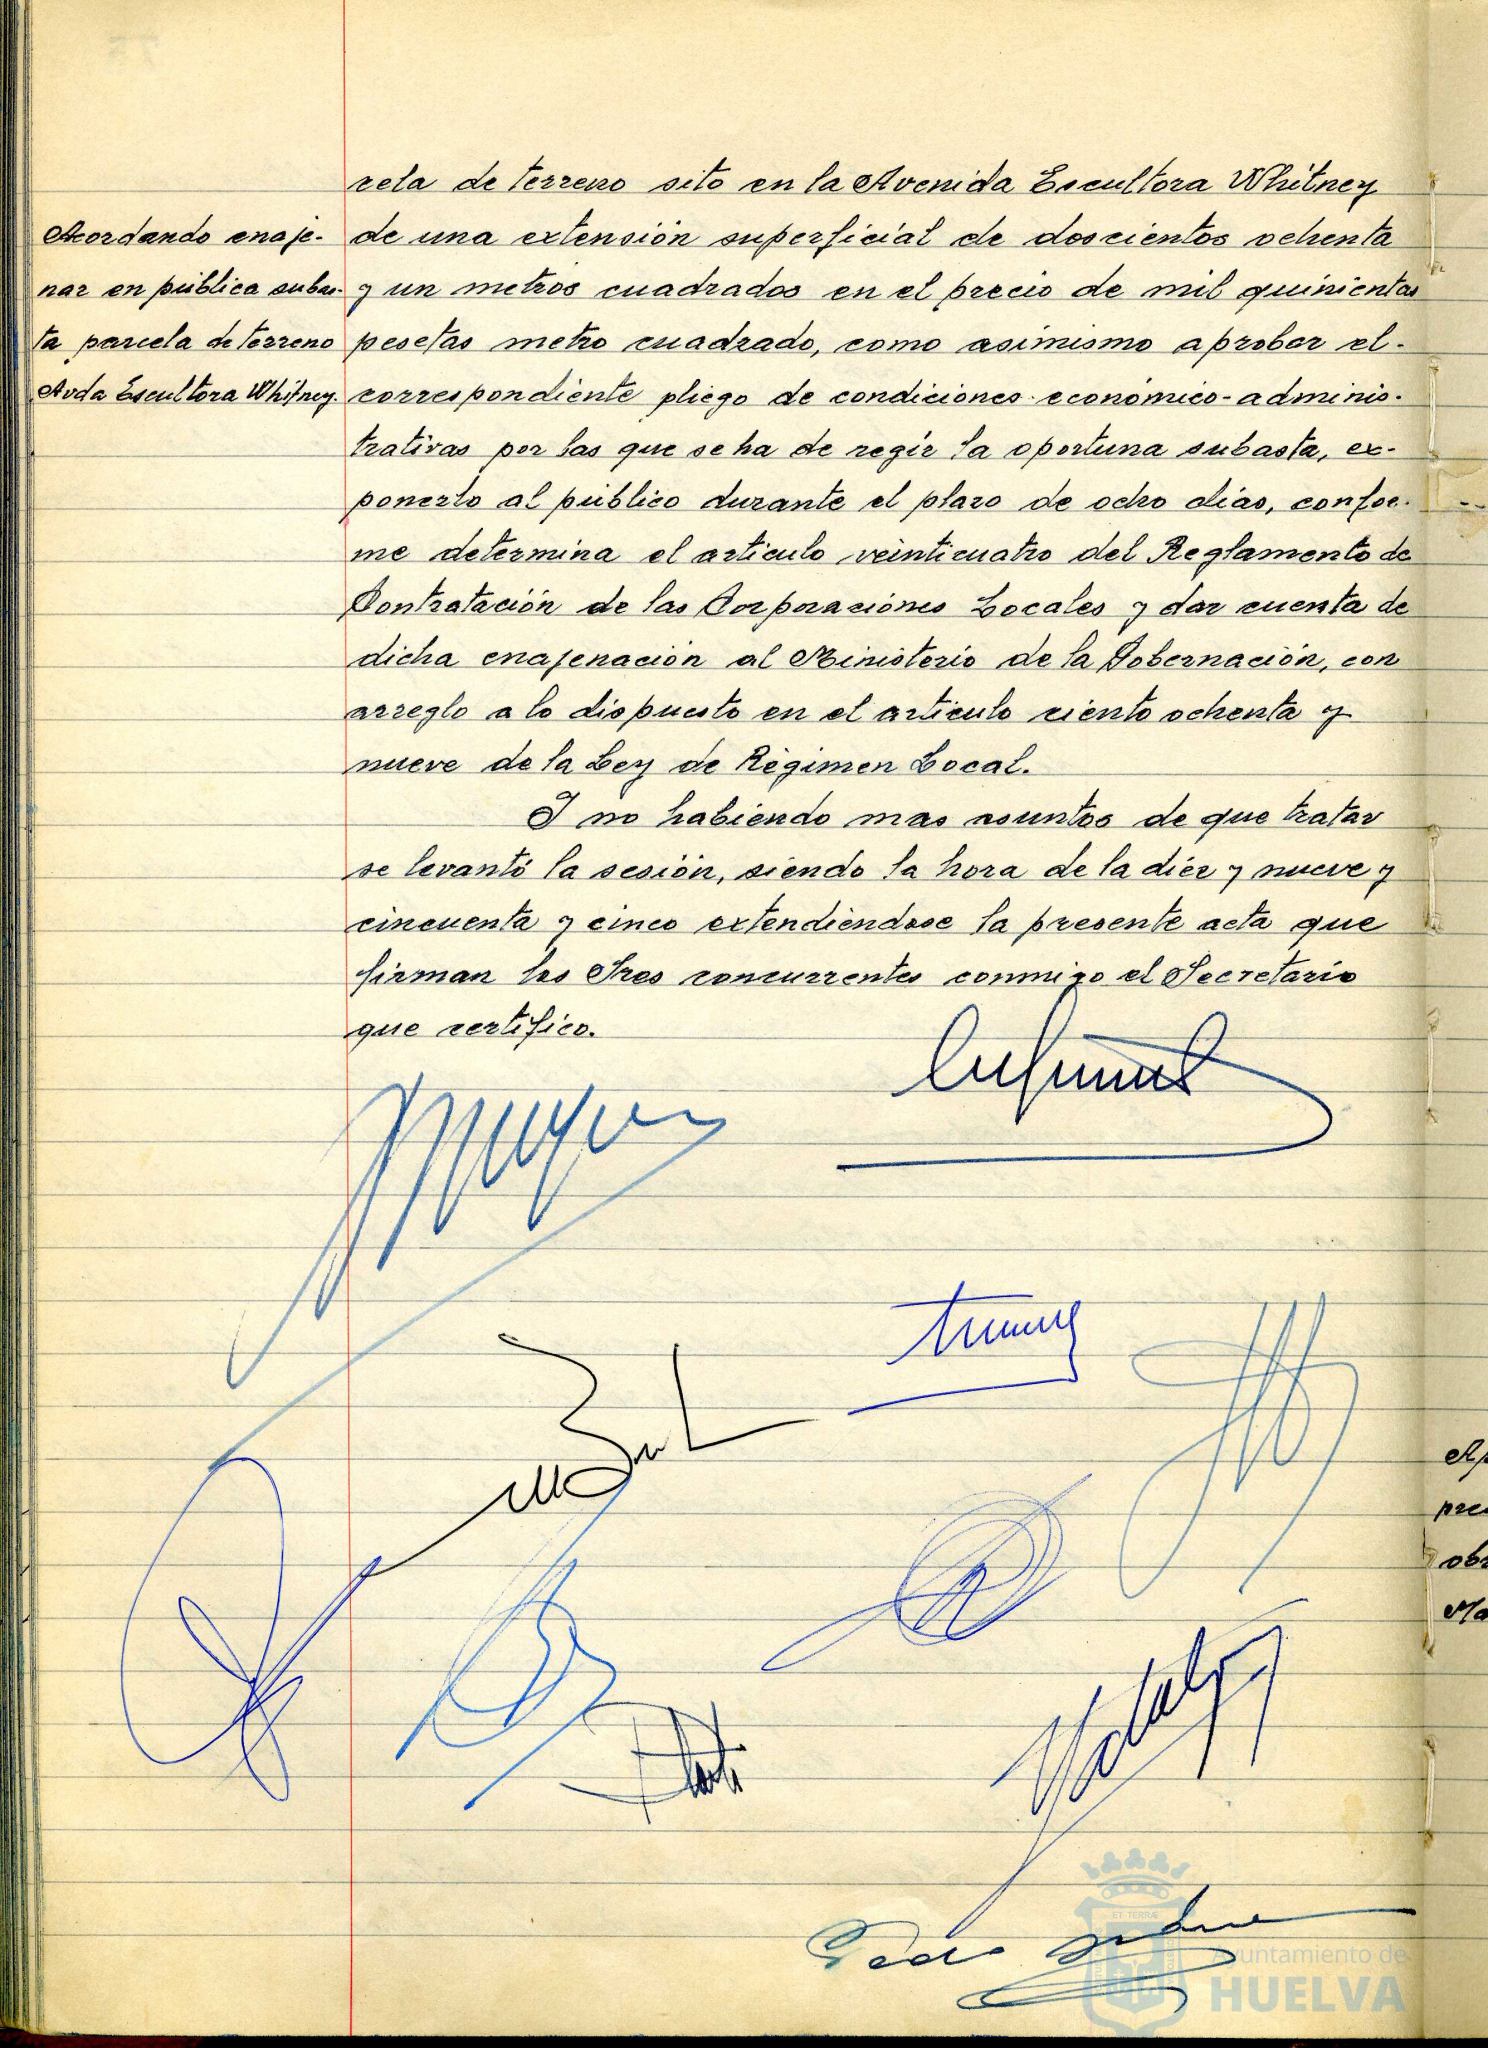 cela de terreno sito en la Avenida Escultora Whitney
Acordando enaje-
nar en pública subas-
ta parcela de terreno
Avda Escultora Whitney.
de una extensión superficial de doscientos ochenta
y un metros cuadrados en el precio de mil quinientas
pesetas metro cuadrado, como asimismo aprobar el-
correspondiente pliego de condiciones económico-adminis-
trativas por las que se ha de regir la oportuna subasta, ex-
ponerlo al público durante el plazo de ocho días, confor-
me determina el artículo veinticuatro del Reglamento de
Contratación de las Corporaciones Locales y dar cuenta de
dicha enajenación al Ministerio de la Gobernación, con
arreglo a lo dispuesto en el artículo ciento ochenta y
nueve de la Ley de Régimen Local.
Y no habiendo mas asuntos de que tratar
se levantó la sesión, siendo la hora de la diez y nueve y
cincuenta y cinco extendiéndose la presente acta que
firman los Sres concurrentes conmigo el Secretario
que certifico.
Hidalgo
Pedro
ET TERRÆ
Ayuntamiento de
HUELVA
Ap
pre
obr
Ma